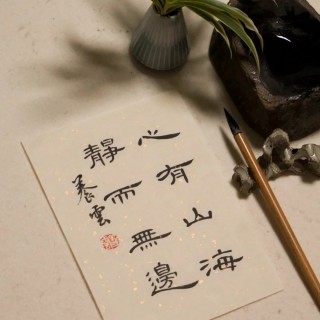 心有山海
靜而無邊
養雲